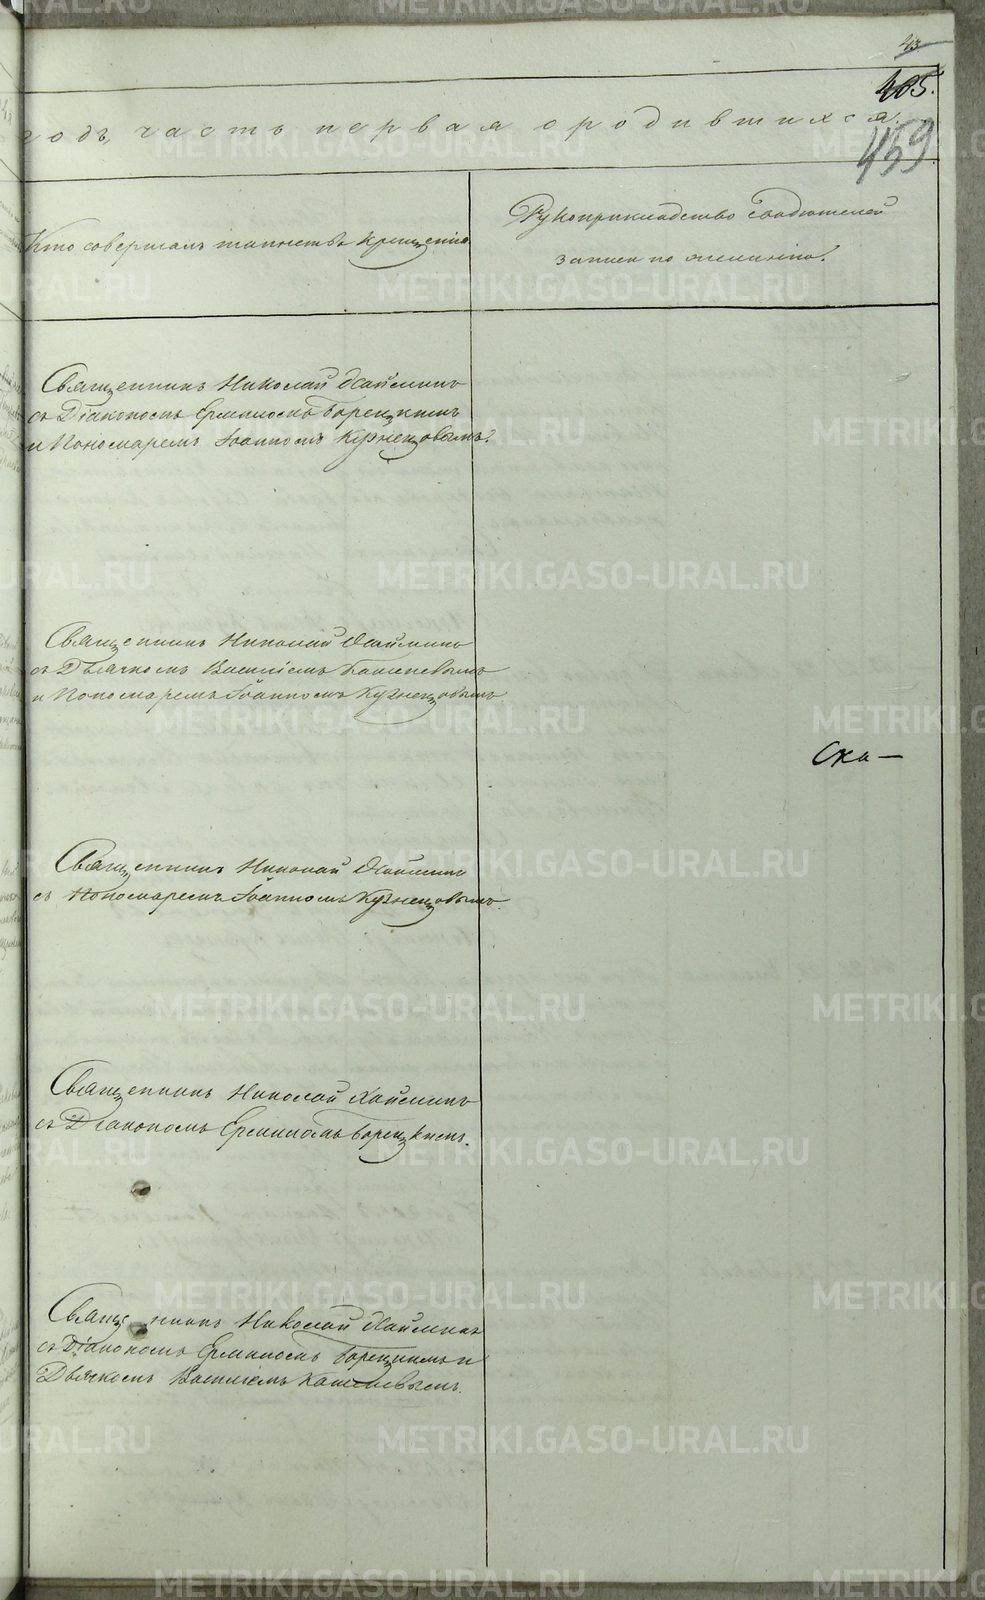 43
405.
459
годъ, часть первая о родившихся.
Кто совершалъ таинство крещенія.
Рукоприкладство свидетелей
записи по желанію.
Священникъ Николай
съ Діакономъ Ермиломъ Борецкимъ
и Пономаремъ Іоанномъ Кузнецовымъ.
Священникъ Николай
съ Дьячкомъ Василіемъ
и Пономаремъ Іоанномъ Кузнецовымъ
Ска—
Священникъ Николай
съ Пономаремъ Іоанномъ Кузнецовымъ.
Священникъ Николай
съ Діакономъ Ермиломъ Борецкимъ.
Священникъ Николай
съ Діакономъ Ермиломъ Борецкимъ и
Дьячкомъ Василіемъ
METRIKI.GASO-URAL.RU